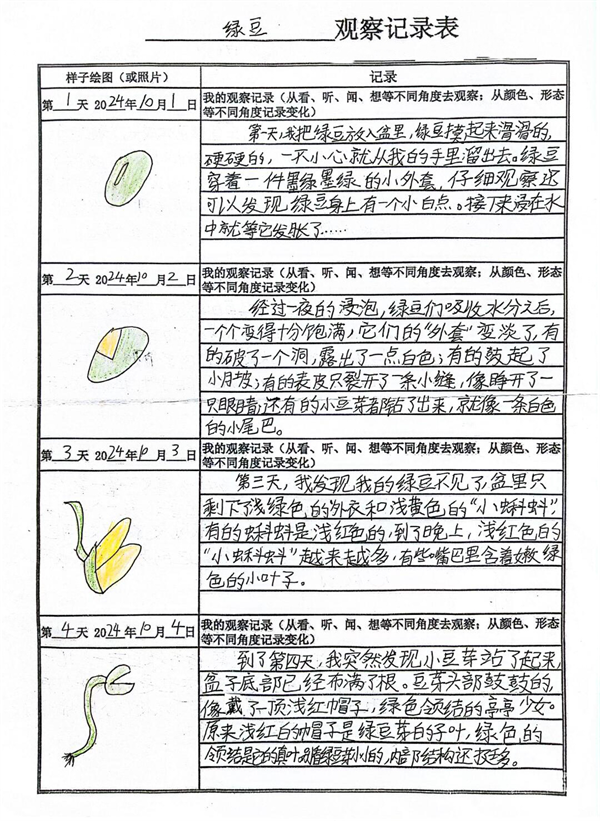 绿豆 观察记录表
样子绘图（或照片） 记录
第1天 2024年10月1日
我的观察记录（从看、听、闻、想等不同角度去观察；从颜色、形态
等不同角度记录变化）
第一天，我把绿豆放入盆里，绿豆摸起来滑滑的，
硬硬的，一不小心就从我的手里溜出去。绿豆
穿着一件墨绿墨绿的小外套，仔细观察还
可以发现绿豆身上有一个小白点。接下来浸在水
中就等它发胀了……
第2天 2024年10月2日
我的观察记录（从看、听、闻、想等不同角度去观察；从颜色、形态
等不同角度记录变化）
经过一夜的浸泡，绿豆们吸收水分之后，
一个个变得十分饱满，它们的“外套”变淡了，有
的破了一个洞，露出了一点白色；有的鼓起了
小肚皮；有的表皮只裂开了一条小缝，像睁开了一
只眼睛；还有的小豆芽都钻了出来，就像一条白色
的小尾巴。
第3天 2024年10月3日
我的观察记录（从看、听、闻、想等不同角度去观察；从颜色、形态
等不同角度记录变化）
第三天，我发现我的绿豆不见了，盆里只
剩下了浅绿色的外衣和浅黄色的“小蝌蚪”，
有的蝌蚪是浅红色的，到了晚上，浅红色的
“小蝌蚪”越来越多，有些嘴巴里含着嫩绿
色的小叶子。
第4天 2024年10月4日
我的观察记录（从看、听、闻、想等不同角度去观察；从颜色、形态
等不同角度记录变化）
到了第四天，我突然发现小豆芽站了起来，
盒子底部已经布满了根。豆芽头部鼓鼓的，
像戴了一顶浅红帽子，绿色领结的亭亭少女。
原来浅红白的帽子是绿豆芽的子叶，绿色的
领结是它的真叶，别看绿豆芽小小的，内部结构还挺多。